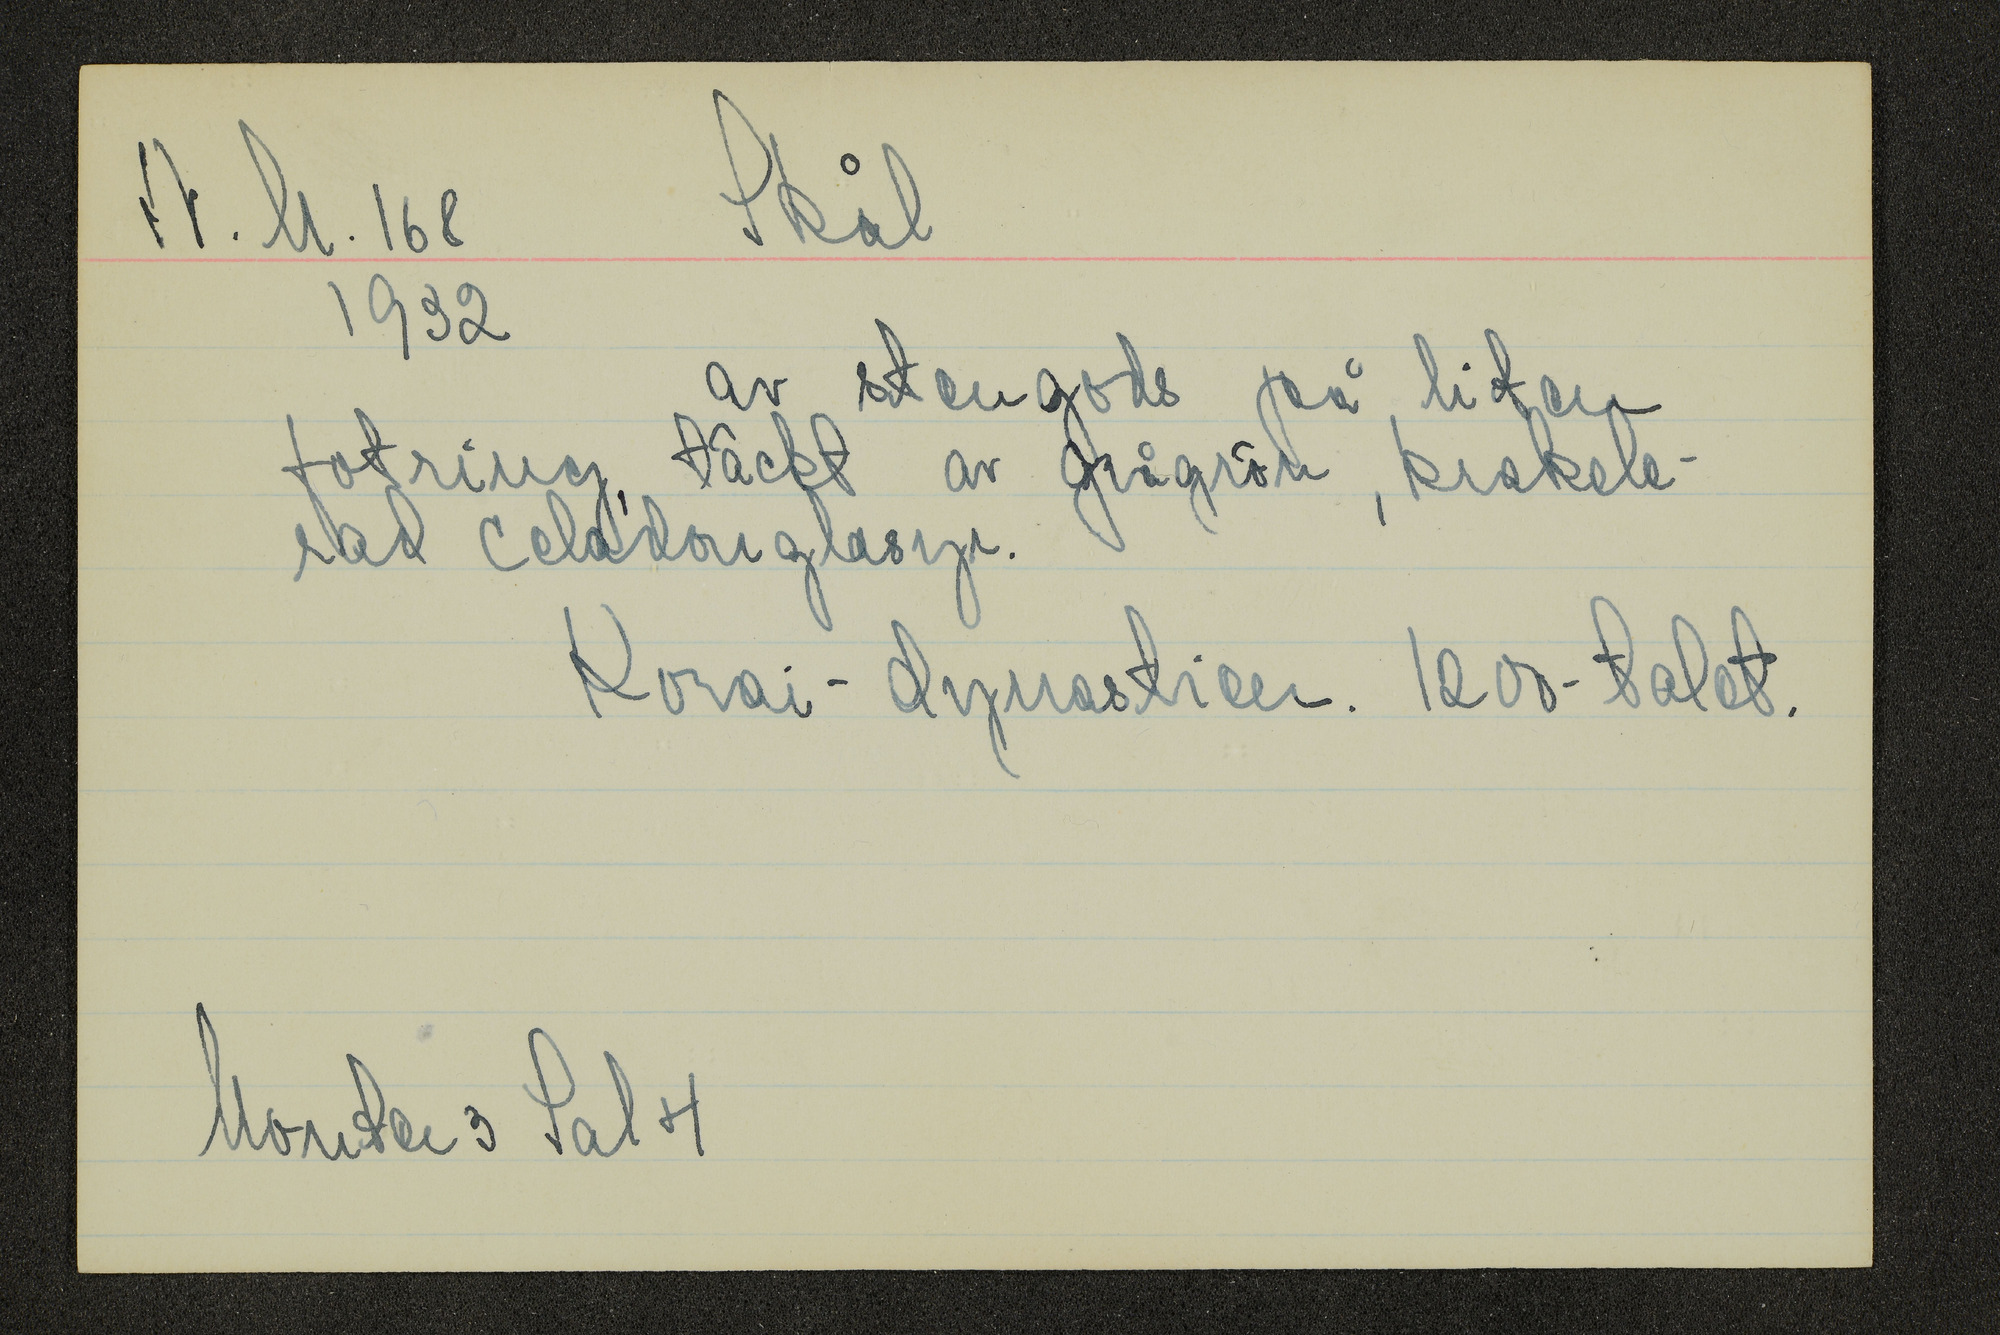 H. M. 168 Skål
1932
av stengods på liten
fotring, täckt av grågrön, krakele-
rad celadonglasyr.
Korai-dynastien. 1200-talet.
Monter 3 Sal 4